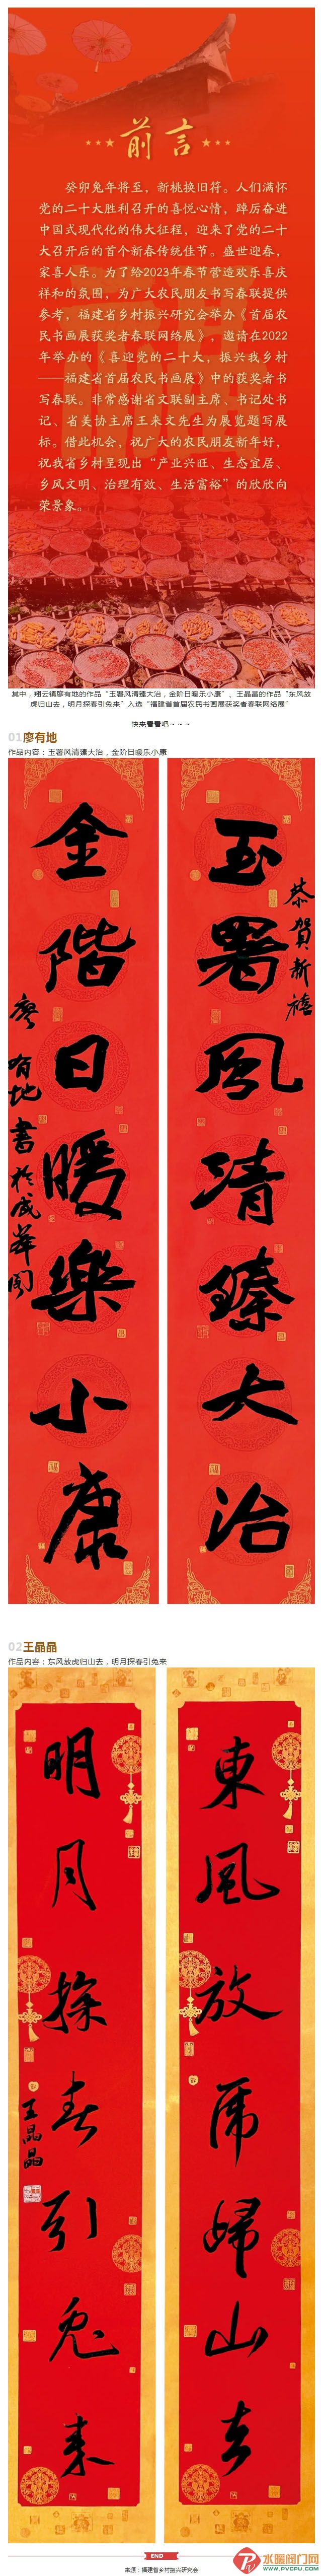 前言
癸卯兔年将至，新桃换旧符。人们满怀
党的二十大胜利召开的喜悦心情，踔厉奋进
中国式现代化的伟大征程，迎来了党的二十
大召开后的首个新春传统佳节。盛世迎春，
家喜人乐。为了给2023年春节营造欢乐喜庆
祥和的氛围，为广大农民朋友书写春联提供
参考，福建省乡村振兴研究会举办《首届农
民书画展获奖者春联网络展》，邀请在2022
年举办的《喜迎党的二十大，振兴我乡村
——福建省首届农民书画展》中的获奖者书
写春联。非常感谢省文联副主席、书记处书
记、省美协主席王来文先生为展览题写展
标。借此机会，祝广大的农民朋友新年好，
祝我省乡村呈现出“产业兴旺、生态宜居、
乡风文明、治理有效、生活富裕”的欣欣向
荣景象。
其中，翔云镇廖有地的作品“玉署风清臻大治，金阶日暖乐小康”、王晶晶的作品“东风放
虎归山去，明月探春引兔来”入选“福建省首届农民书画展获奖者春联网络展”
快来看看吧~~~
01廖有地
作品内容：玉署风清臻大治，金阶日暖乐小康
恭賀新禧
玉署風清臻大治
金階日暖樂小康
廖有地書於成華閣
02王晶晶
作品内容：东风放虎归山去，明月探春引兔来
東風放虎歸山去
明月探春引兔来
王晶晶
END
来源：福建省乡村振兴研究会
水暖阀门网
WWW.PVCPU.COM